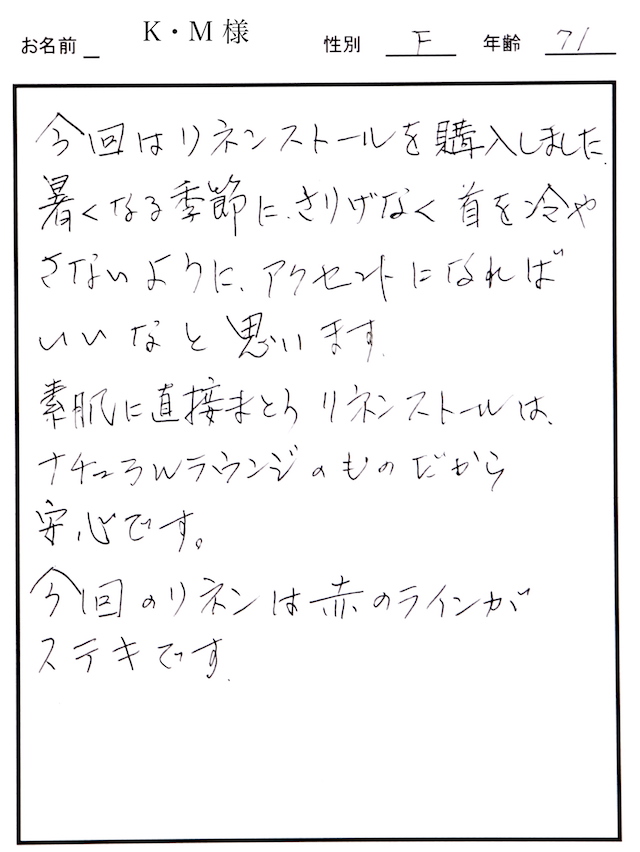 お名前 K・M様 性別 F 年齢 71
今回はリネンストールを購入しました。
暑くなる季節に、さりげなく首を冷や
さないように、アクセントになれば
いいなと思います。
素肌に直接まとうリネンストールは、
ナチュラルラウンジのものだから
安心です。
今回のリネンは赤のラインが
ステキです。